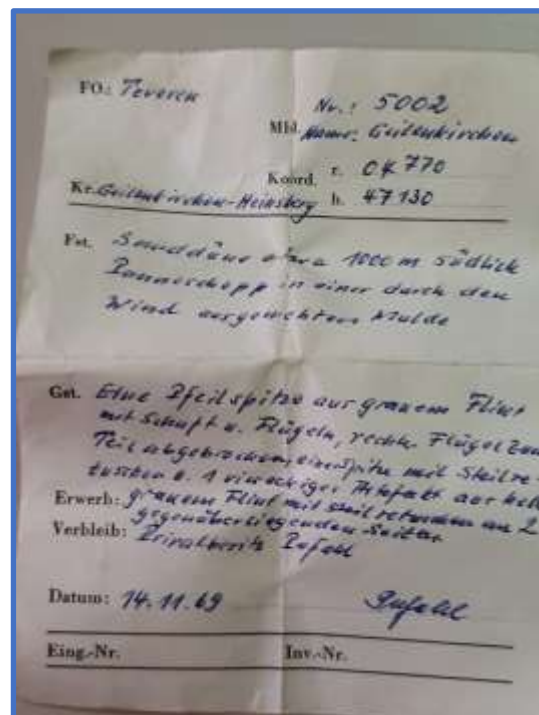 FO.: Teveren
Nr.: 5002
Mbl. Name: Geilenkirchen
Koord. r. 04 770
Kr. Geilenkirchen-Heinsberg h. 47 130
Fst. Sanddüne etwa 1000 m südlich
Panneschopp in einer durch den
Wind ausgewehten Mulde
Gst. Eine Pfeilspitze aus grauem Flint
mit Schaft u. Flügeln, rechter Flügel zum
Teil abgebrochen, eine Spitze mit Steilre-
tuschen u. 1 viereckiger Artefakt aus hell
Erwerb: grauem Flint mit Steilretuschen an 2
gegenüberliegenden Seiten
Verbleib: Privatbesitz Pufahl
Datum: 14.11.69 Pufahl
Eing.-Nr. Inv.-Nr.